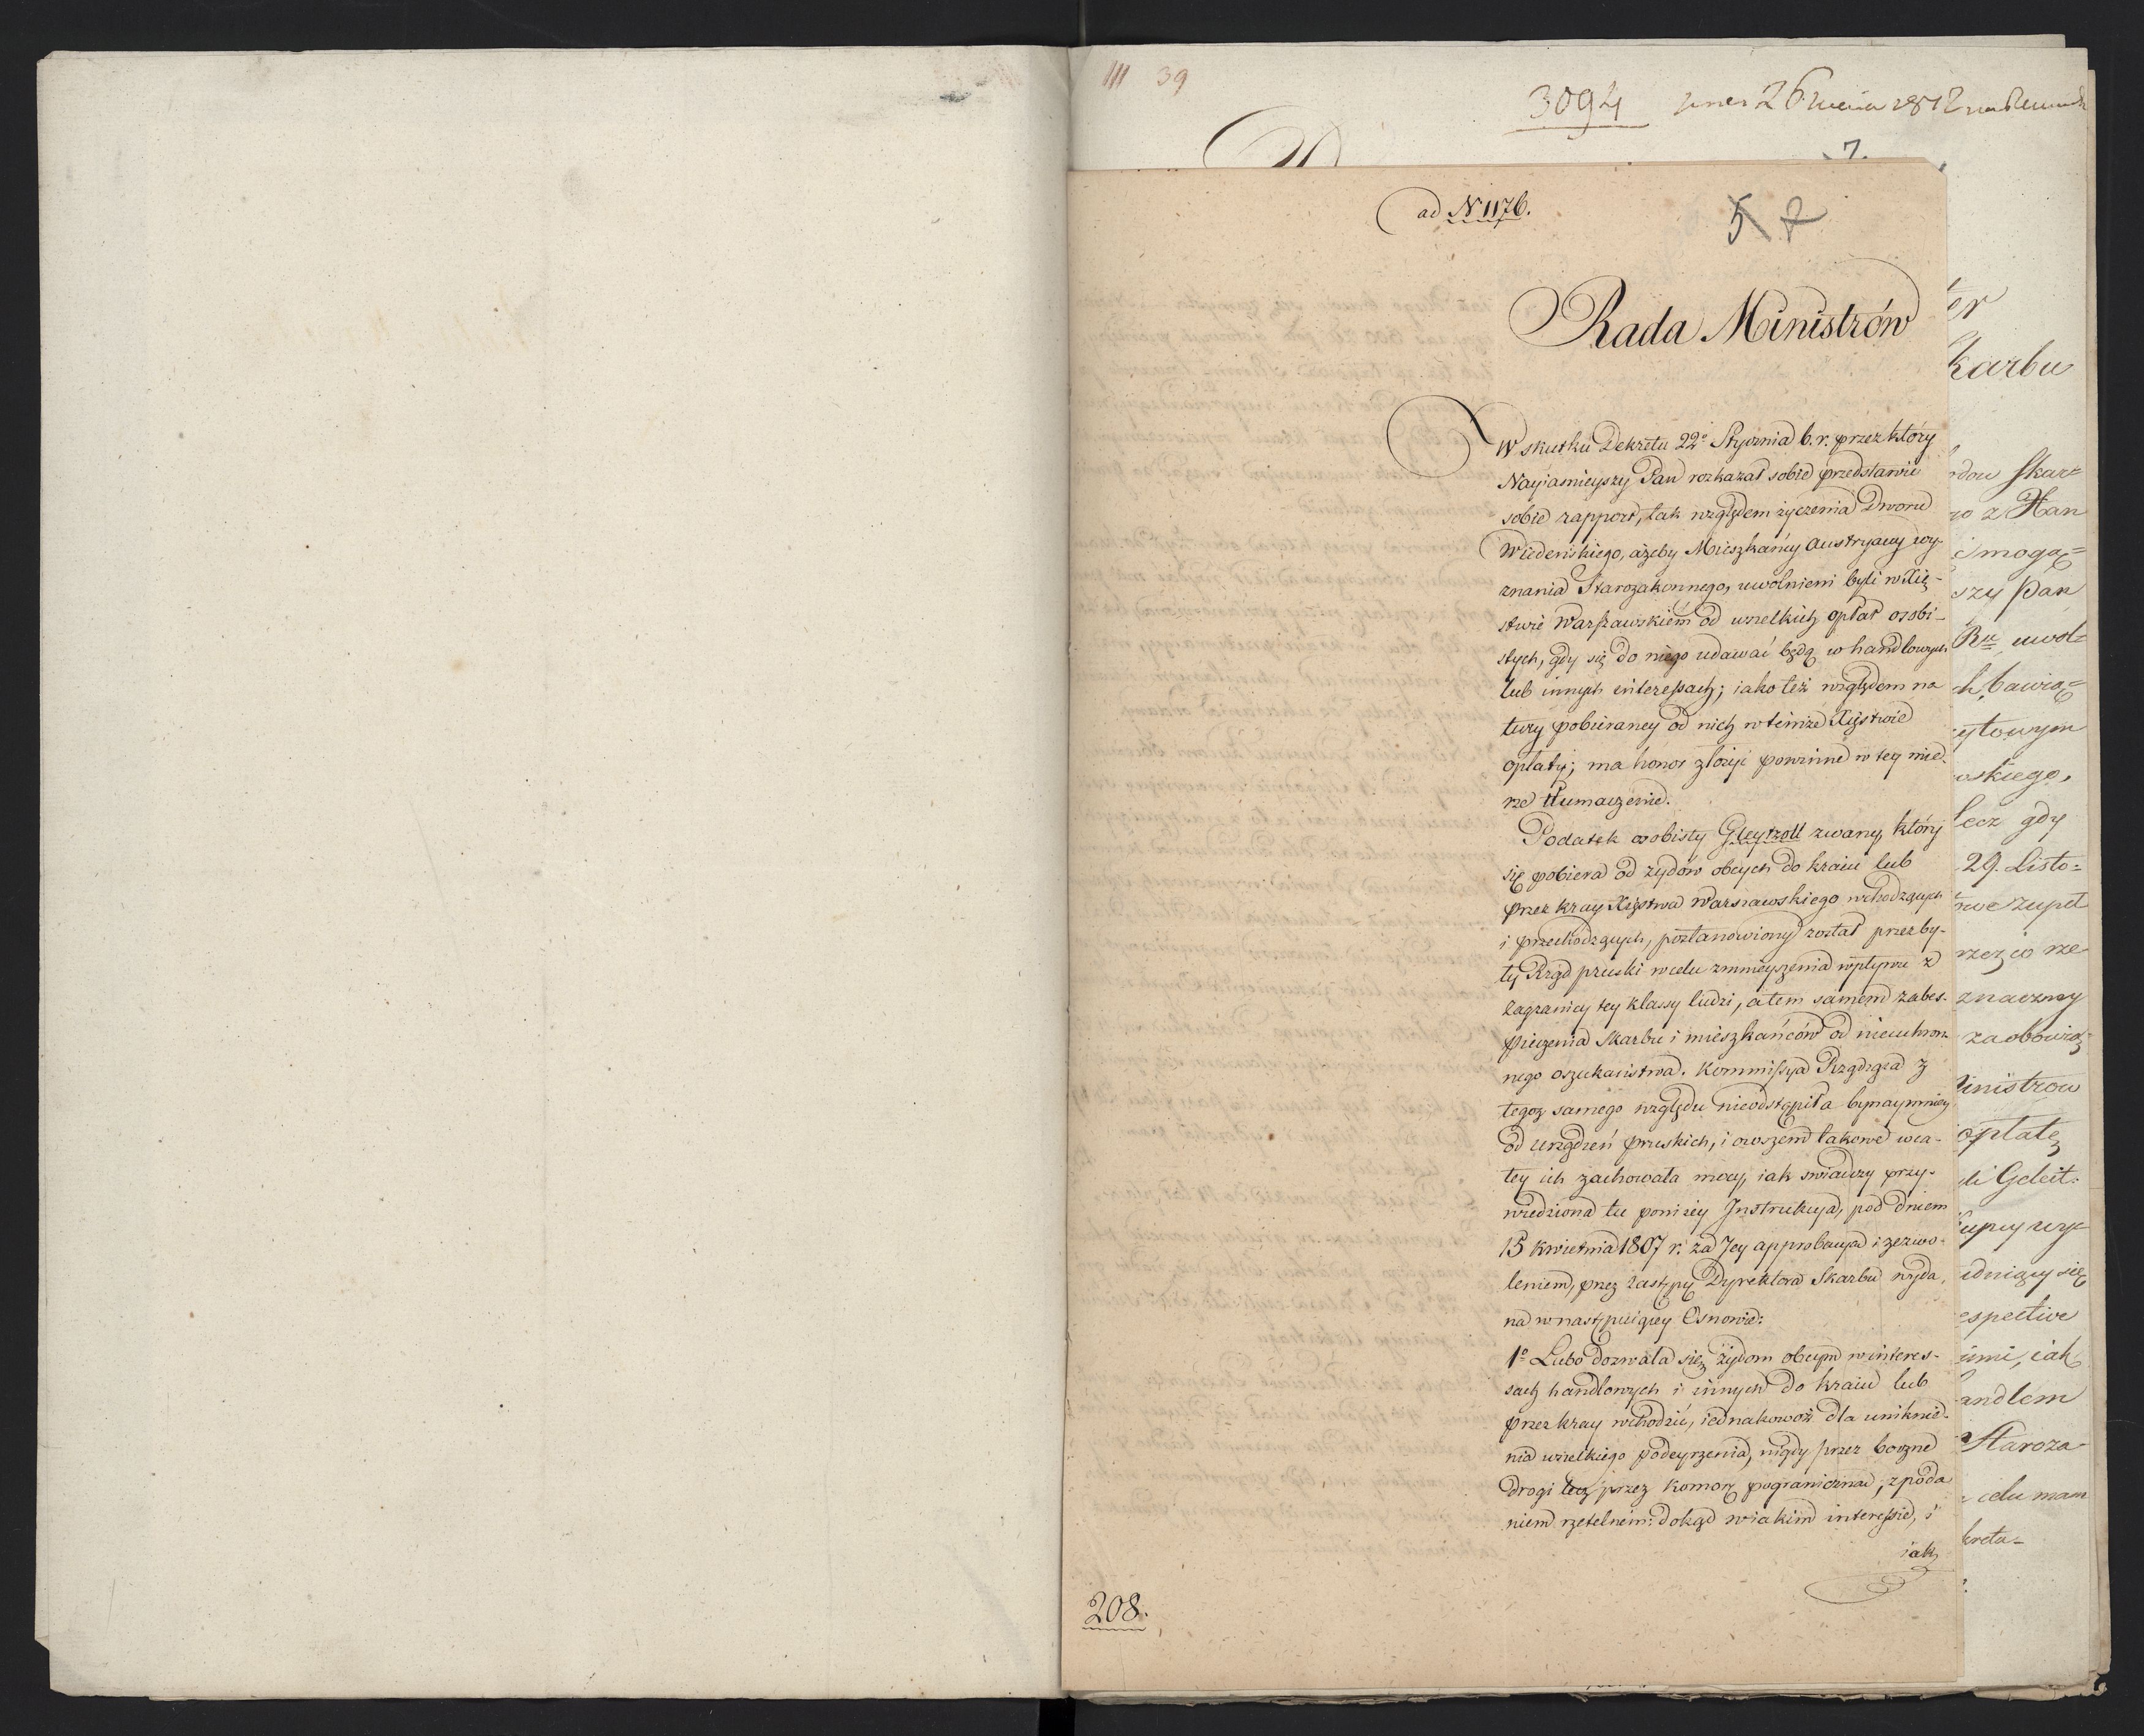 III 39
3094
7.
ad N 1176.
5 7
Rada Ministrów
W skutku Dekretu 22º Stycznia b. r. przez który
Nayiaśnieyszy Pan rozkazał sobie przedstawić
sobie rapport, tak względem życzenia Dworu
Wiedeńskiego, ażeby Mieszkańcy Austryaccy wy-
znania Starozakonnego, uwolnieni byli w Xię-
stwie Warszawskiem od wszelkich opłat osobi-
stych, gdy się do niego udawać będą w handlowych
lub innych interessach; iako też względem na
tury pobieraney od nich w témże Xięstwie
opłaty; ma honor złożyć powinne w tey mie-
rze tłumaczenie.
Podatek osobisty Gleytzoll zwany, który
się pobiera od żydów obcych do kraiu lub
przez kray Xięstwa Warszawskiego wchodzących
i przechodzących, postanowiony został przez by-
ły Rząd pruski w celu zmnieyszenia wpływu z
zagranicy tey klassy ludzi, a tem samem zabes-
pieczenia Skarbu i mieszkańców od nieuchron-
nego oszukaństwa. Kommissya Rządząca z
tegoż samego względu nieodstąpiła bynaymniey
od urządzeń pruskich, i owszem takowe w ca-
łey ich zachowała mocy, iak świadczy przy-
wiedziona tu poniżey Instrukcya, pod dniem
15 kwietnia 1807 r. za Jey approbacyą i zezwo-
leniem, przez zastępcę Dyrektora Skarbu wyda-
na w następuiącey Osnowie:
1º Lubo dozwala się żydom obcym w interes-
sach handlowych i innych do kraiu lub
przez kray wchodzić, iednakowoż dla uniknie-
nia wszelkiego podeyrzenia, nigdy przez boczne
drogi lecz przez komorę pograniczną, z poda
niem rzetelném: dokąd w iakim interessie, i
iak
208.
er
karbu
dou skar=
go z Han
i mogą=
szy Pan
Ru uwol=
ch, bawią=
ytowym
wskiego,
lecz gdy
29. Listo=
twe zupeł
rzez co rze
znaczny
zaobowią
inistrow
opłatę
di Geleit.
upcy wy=
udniący się
espective
iimi, iak
andlem
Staroza
celu mam
kretu-